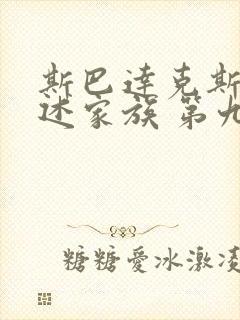 斯巴達克斯
述家族 第九
糖糖愛冰激凌